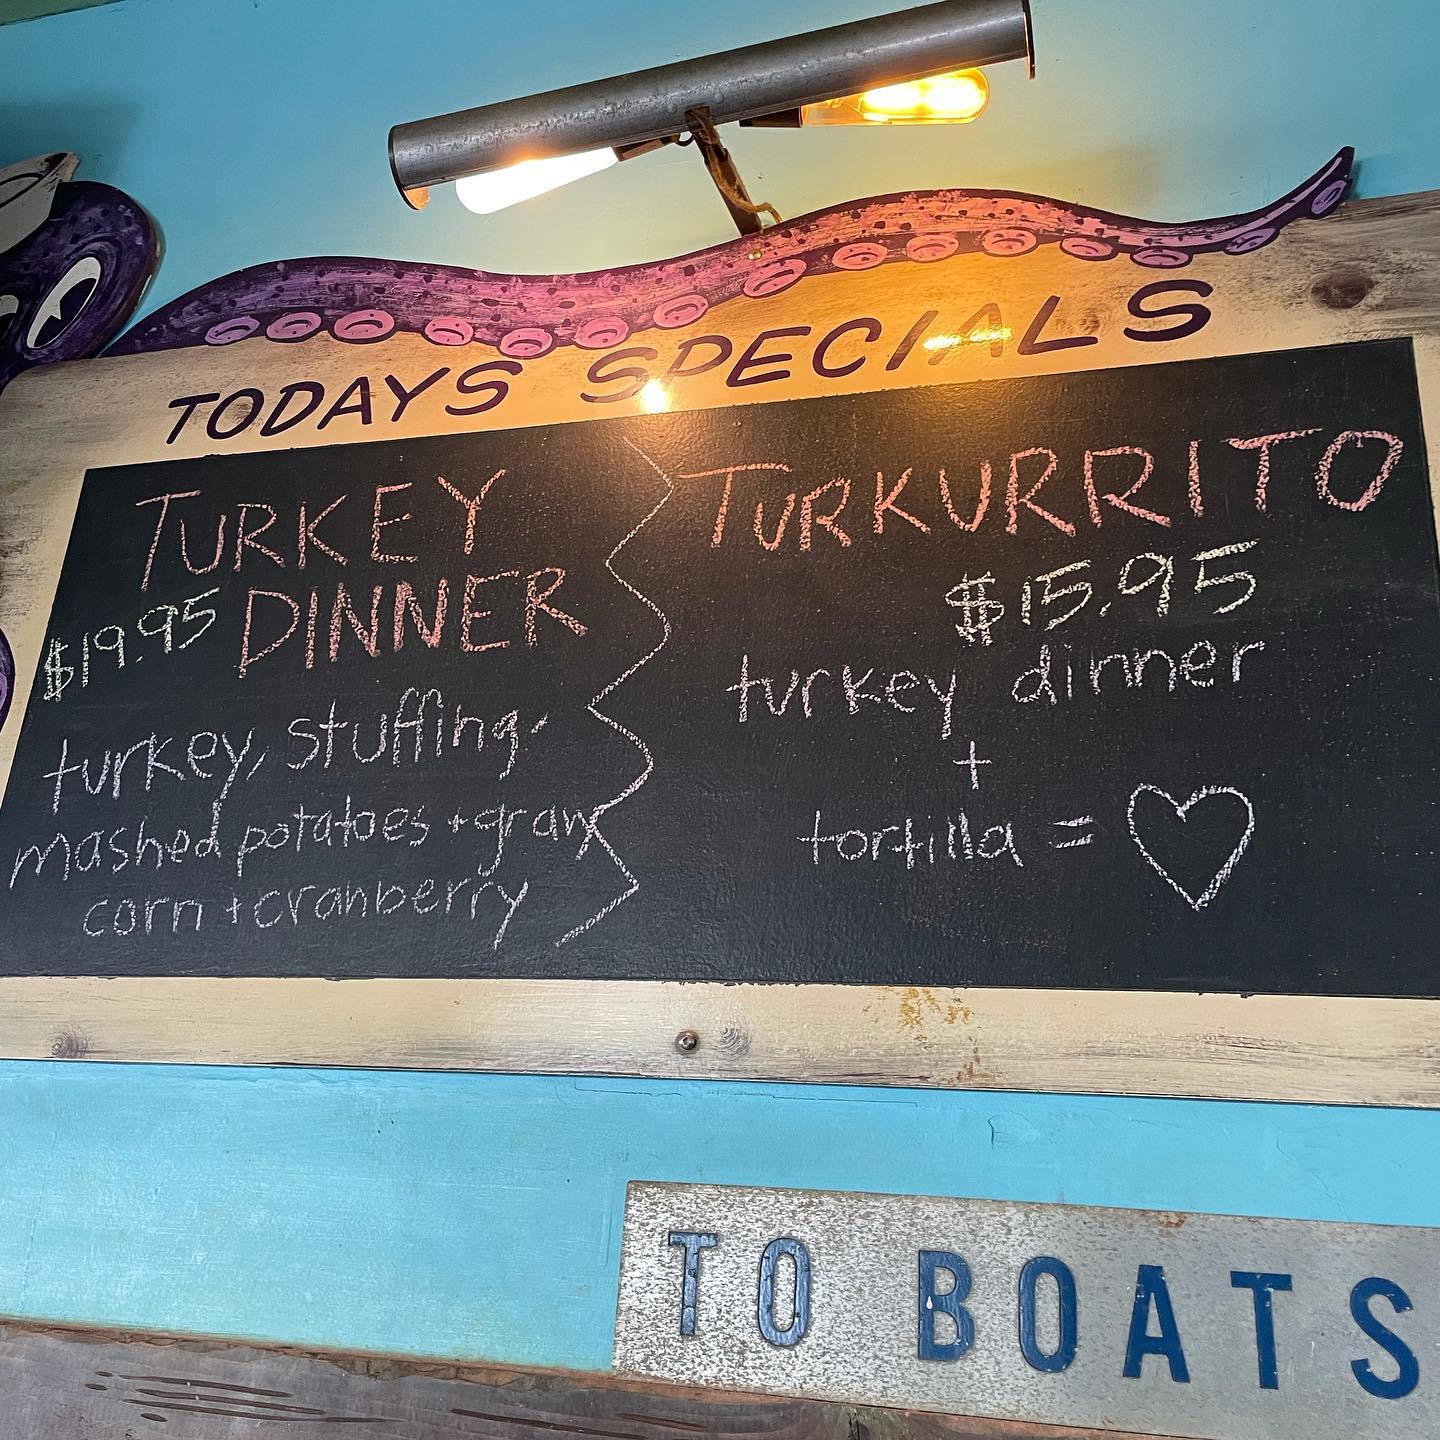 TODAYS SPECIALS
TURKEY
$19.95 DINNER
turkey, stuffing,
mashed potatoes + gravy
corn + cranberry
TURKURRITO
$15.95
turkey dinner
+
tortilla = ♡
TO BOATS